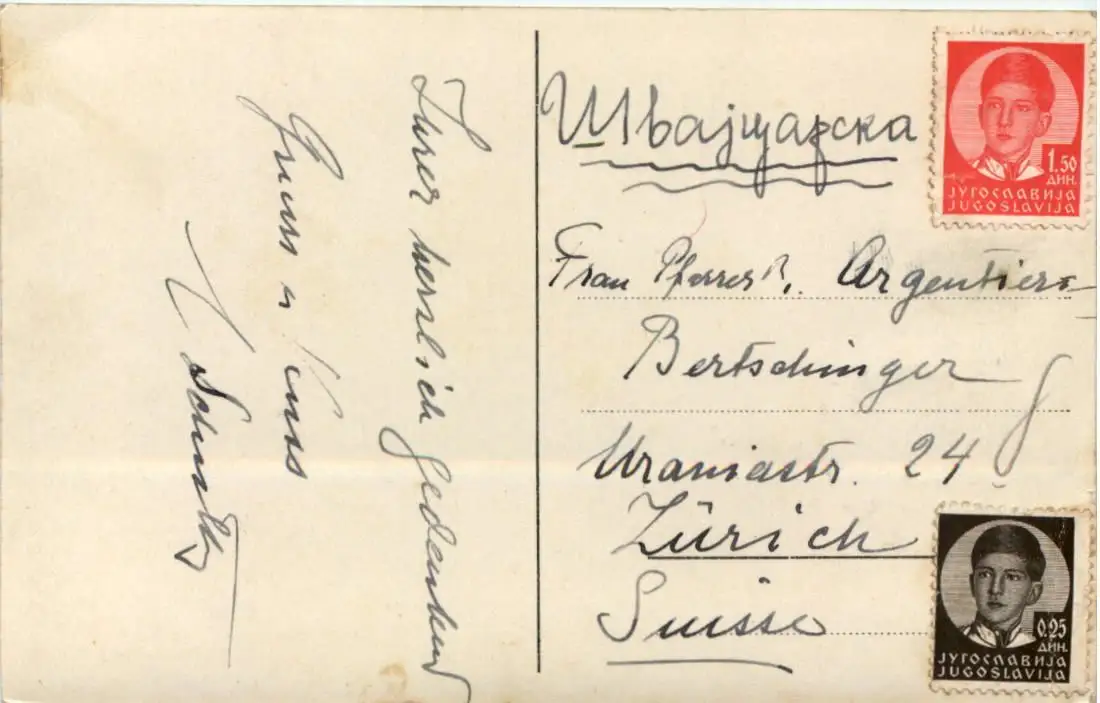 Eurer herzlich gedenkend
Gruss u Kuss
Швајцарска
Frau Pfarrer Argentier-
Bertschinger
Uraniastr. 24
Zürich
Suisse
1.50
ДИН.
ЈУГОСЛАВИЈА
JUGOSLAVIJA
0.25
ДИН.
ЈУГОСЛАВИЈА
JUGOSLAVIJA